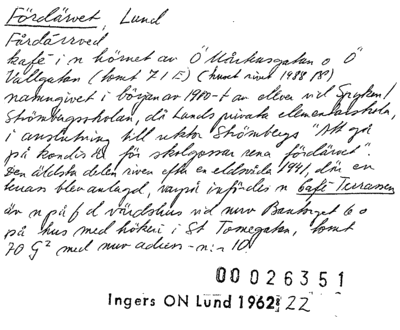 Fördärvet, Lund
Fördärvet
kafé i n hörnet av Ö Mårtensgatan o Ö
Vallgatan (tomt 71 E) (huset rivet 1988 )
namngivet i början av 1900-t av elever vid Spyken/
Strömbergsskolan, då Lunds privata elementarskola,
i anslutning till rektor Strömbergs "Att gå
på kondis är för skolgossar rena fördärvet".
Den äldsta delen riven efter en eldsvåda 1941, där en
terrass blev anlagd, varpå infördes n Café Terrassen
äv n på f d värdshus vid nuv Bantorget 6 o
på hus med hökeri i St Tomegatan, tomt
70 G² med nuv adress-n:r 10.
00026351
Ingers ON Lund 1962: 22